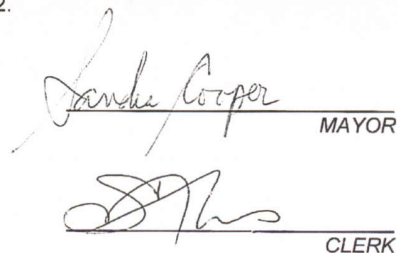 2.
Sandra Cooper
MAYOR
CLERK